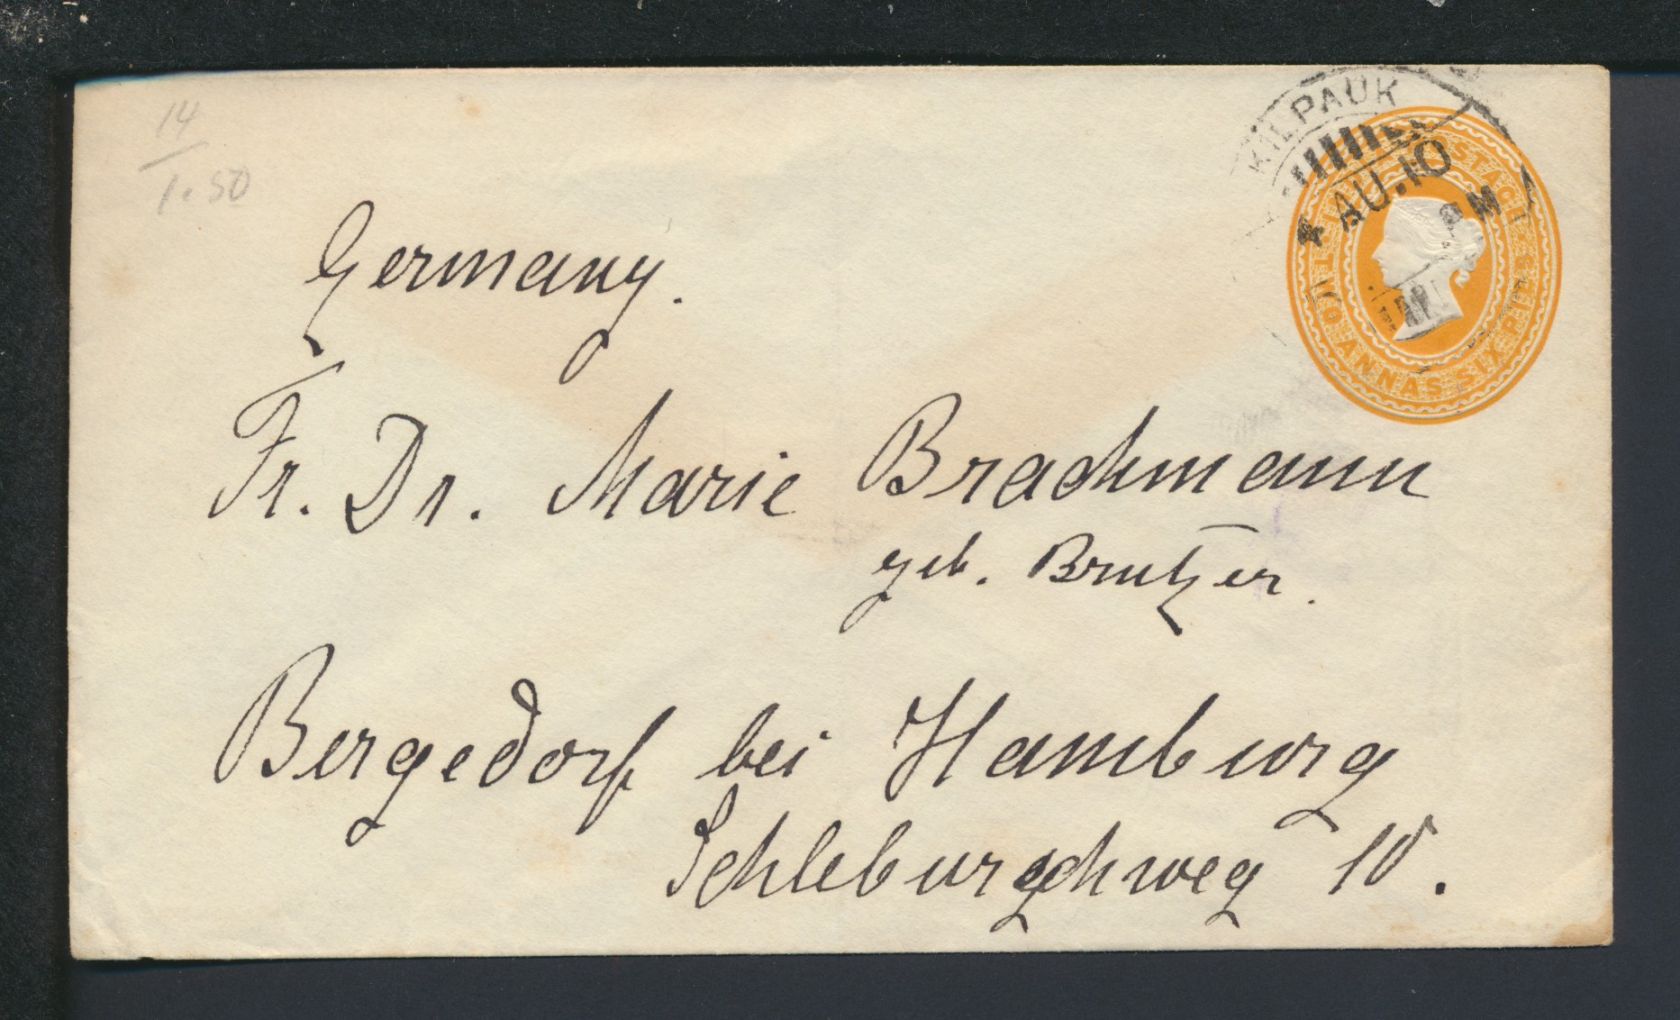 14
1.50
KILPAUK
4 AU.10
PM
POSTAGE
TWO ANNAS SIX PIES
Germany.
Fr. Dr. Marie Brachmann
geb. Brutzer.
Bergedorf bei Hamburg
10.